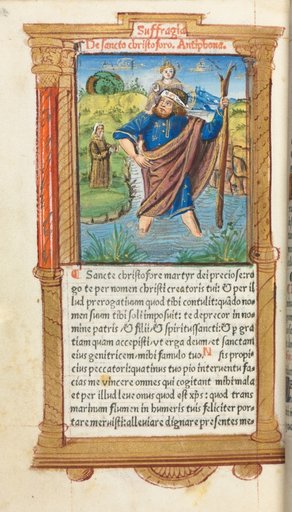 Suffragia
De sancto christoforo. Antiphona.
Sancte christofore martyr dei preciose: ro
go te per nomen christi creatoris tui: & per il
lud prerogatiuum quod tibi contulit: quãdo no
men suum tibi soli imposuit: te deprecor in no
mine patris & filii & spiritussancti: & p gra
tiam quam accepisti: vt erga deum et sanctam
eius genitricem mihi famulo tuo. N sis propi
cius peccatori: quatinus tuo pio interuentu fa
cias me vincere omnes qui cogitant mihi mala
et per illud leue onus quod est xp̃s: quod trans
marinum flumen in humeris tuis feliciter por
tare meruisti: alleuiare dignare presentes me